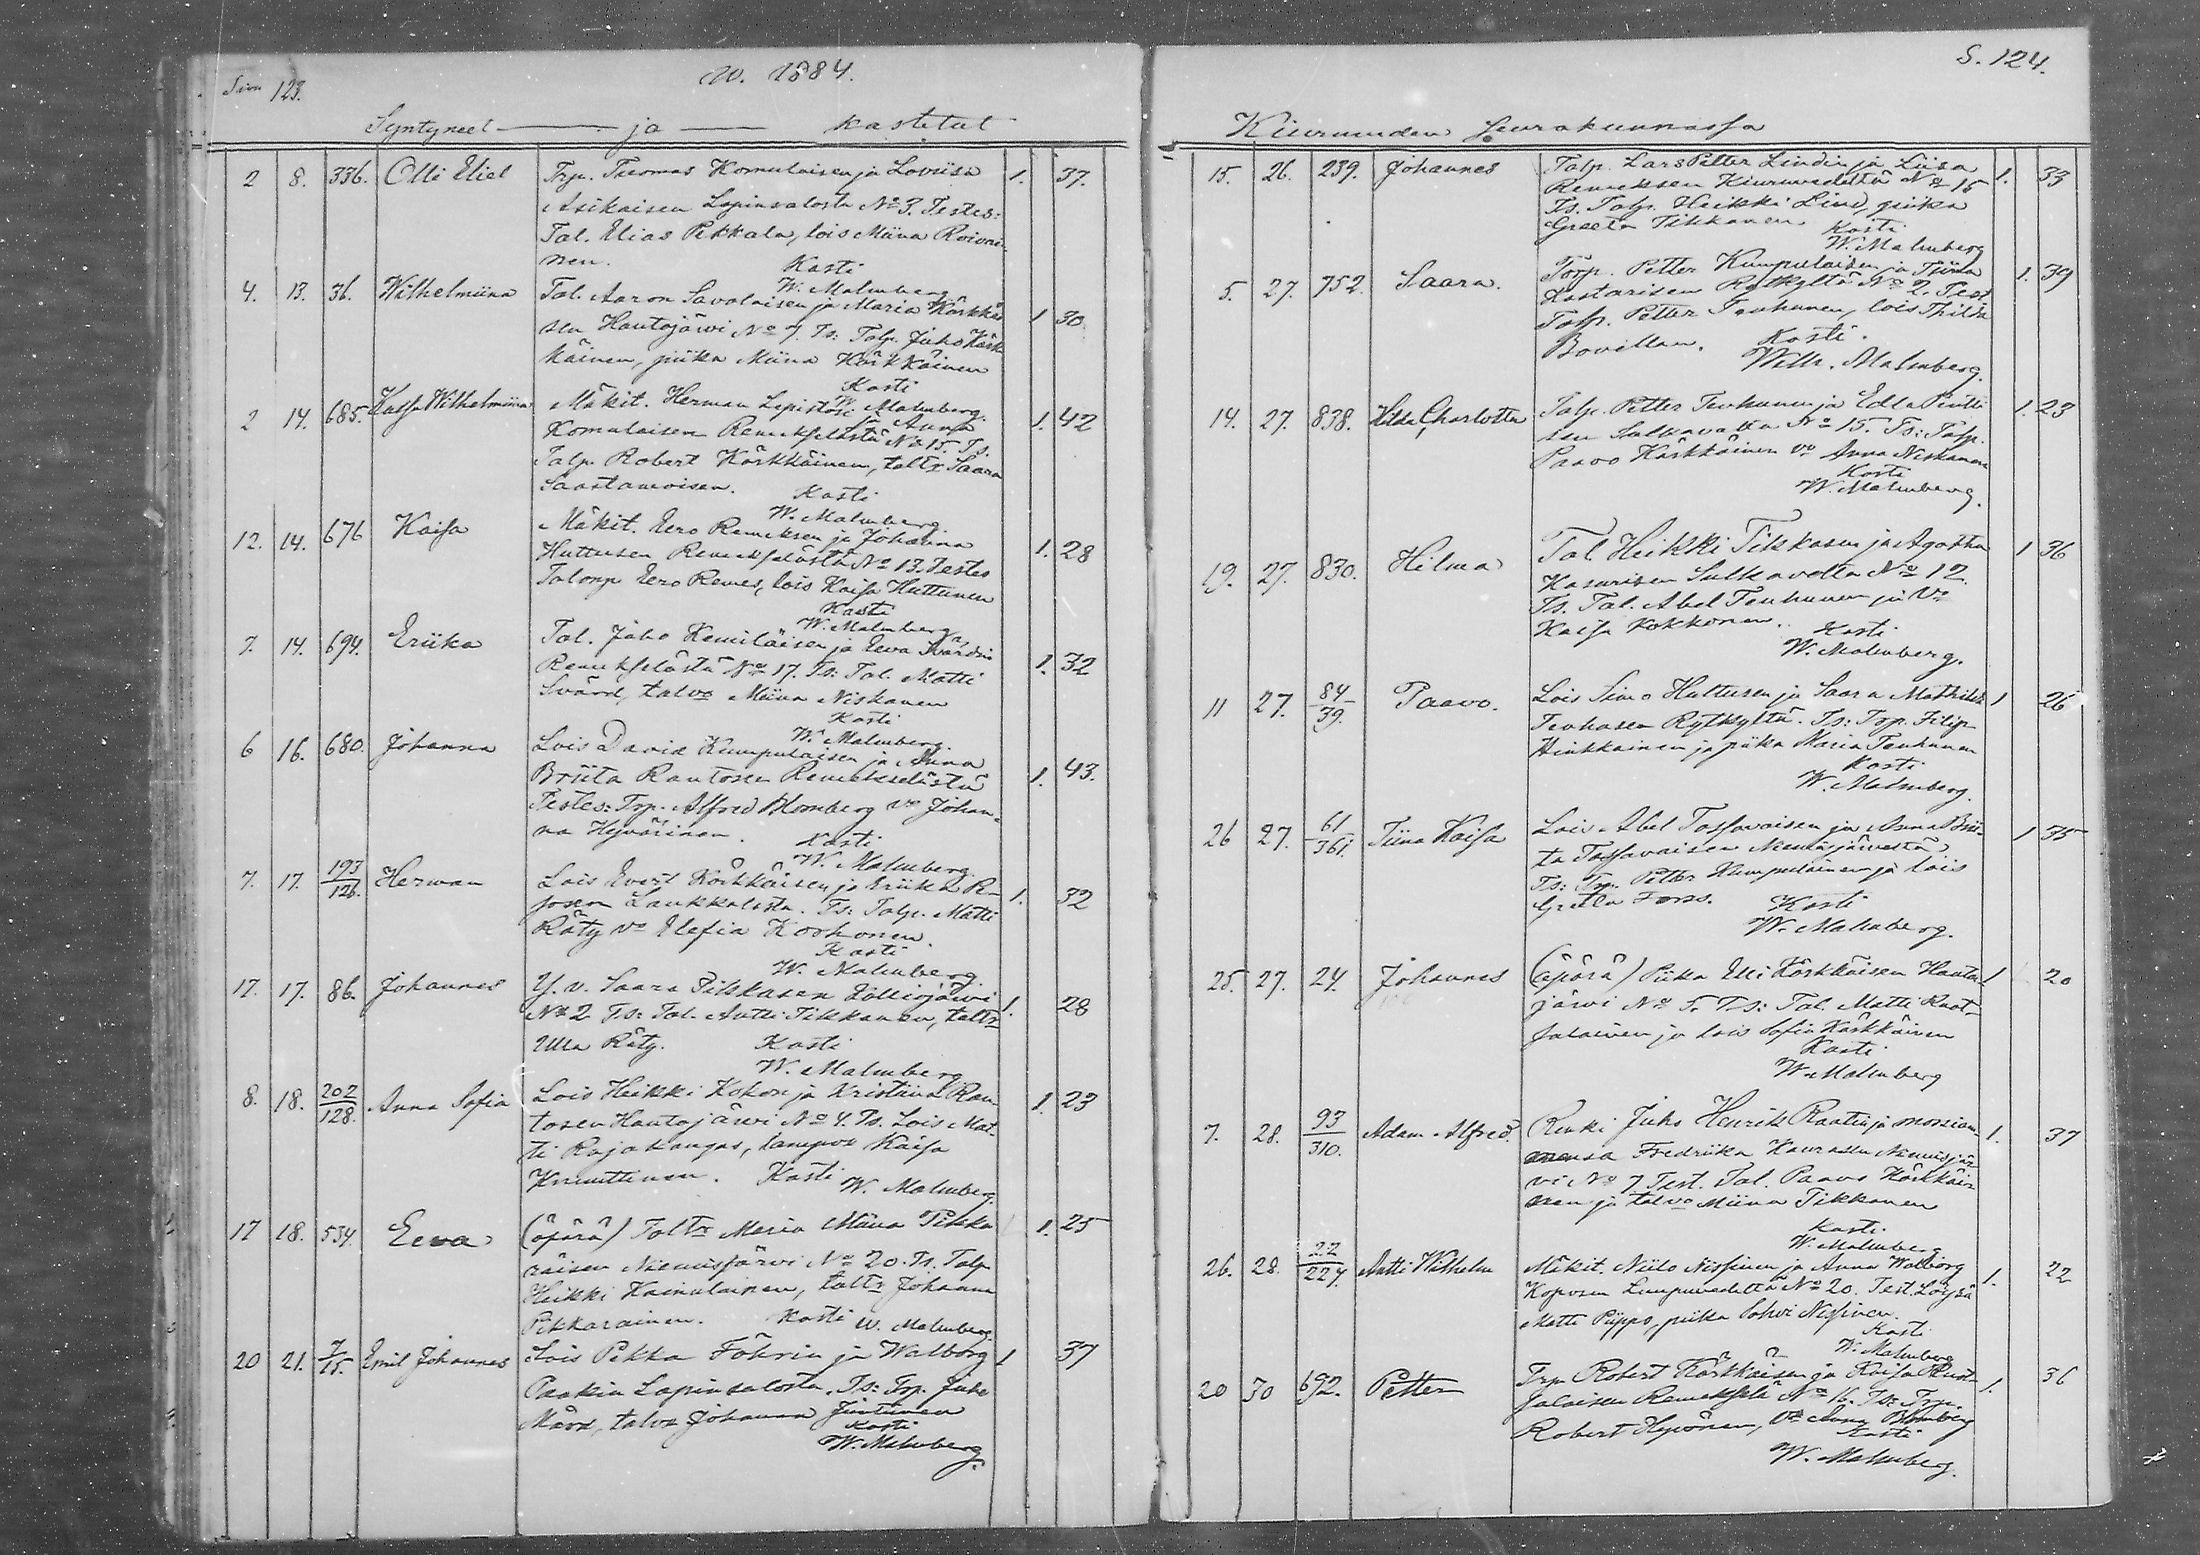 Sivu 123.
v. 1884.
Syntyneet ja kastetut
2 8. 336. Olli Eliel Trp. Thomas Komulaisen ja Loviisa 1. 37.
Asikaisen Lapinsalosta No 3. Testes:
Tal. Elias Pekkala, lois Miina Roivai-
nen. Kasti
W. Malmberg
4. 13. 36. Wilhelmiina Tal. Aaron Savolaisen ja Maria Kärkkäi
sen Hautojärwi No 7. Ts: Talp. Juho Kärk 1 30.
käinen, piika Miina Kärkkäinen
Kasti
W. Malmberg.
2 14. 685. Kaisa Wilhelmiina Mäkit. Herman Lepistöi ja Anna 1. 42
Komulaisen Remekselästä No 15. Ts.
Talp. Robert Kärkkäinen, taltr Saara
Saastamoisen. Kasti
W. Malmberg.
12. 14. 676 Kaisa Mäkit. Eero Remeksen ja Johanna
Huttusen Remekselästä No 13. Testes 1. 28
Talonp Eero Remes, lois Kaisa Huttunen
Kasti
W. Malmberg
7. 14. 694. Eriika Tal. Juho Kemiläisen ja Eeva Svärdin
Remekselästä No 17. Ts: Tal. Matti 1. 32
Svärd, talvo Miina Niskanen
Kasti
W. Malmberg.
6 16. 680. Johanna Lois David Kumpulaisen ja Anna
Briita Rautosen Remekselästä 1. 43.
Testes: Trp. Alfred Blomberg vo Johan-
na Hyvärinen. Kasti
W. Malmberg.
7. 17. 193/126. Herman Lois Evert Kärkkäisen ja Eriika R-
josen Laukkalasta. Ts: Talp. Matti 1. 32
Räty vo Elefia Korhonen.
Kasti
W. Malmberg
17. 17. 86. Johannes Y. v. Saara Tikkasen Kölliojärwi
No 2 Ts: Tal. Antti Tikkanen, taltr 1. 28
Ulla Räty. Kasti
W. Malmberg
8. 18. 202/128. Anna Sofia Lois Heikki Kokon ja Kristiina Rau
tosen Hautojärwi No 4. Ts. Lois Mat- 1. 23
ti Rajakangas, Kaisa
Knuuttinen. Kasti W. Malmberg.
17 18. 534. Eeva (äpärä) Taltr Maria Miina Pikka 1. 25
räisen Niemisjärwi No 20. Ts. Talp
Heikki Kainulainen, taltr Johanna
Pikkarainen. Kasti W. Malmberg.
20 21. 7/15. Emil Johannes Lois Pekka Föhrin ja Walborg 1 37
Paakin Lapinsalosta. Ts: Trp. Juho
Märd, talvo Johanna Juntunen
Kasti
W. Malmberg.
S. 124.
Kiuruveden Seurakunnassa
15. 26. 239. Johannes Talp. Lars Petter Lindin ja Liisa 1. 33
Remeksen Kiuruvedeltä No 15
Ts. Talp. Heikki Lind, piika
Greeta Tikkanen Kasti
W. Malmberg
5. 27. 752. Saara. Torp. Petter Kumpulaisen ja Tiina 1. 39
Kastarisen Rytkyltä No 2. Test
Talp. Petter Tenhunen, lois Thilda
Bovellan. Kasti.
Wilh. Malmberg.
14. 27. 838. Hilda Charlotta Talp. Petter Tenhunen ja Edla Pentti 1. 23
sen Sulkavalta No 15. Ts: Talp.
Paavo Kärkkäinen vo Anna Niskanen
Kasti
W. Malmberg.
19. 27. 830. Hilma Tal Heikki Tikkasen ja Agatha 1 36
Kasurisen Sulkavalta No 12.
Ts. Tal. Abel Tenhunen ja Vo
Kaisa Kokkonen. Kasti
W. Malmberg.
11 27. 84/39. Paavo. Lois Simo Huttusen ja Saara Mathilda 1 26
Tenhusen Rytkyltä. Ts: Trp. Filip
Hinkkainen ja piika Maria Tenhunen
Kasti
W. Malmberg.
26 27. 61/361. Tiina Kaisa Lois Abel Tossavaisen ja Anna Brii- 1 35
ta Tossavaisen Niemisjärvestä
Ts: Trp. Petter Kumpulainen ja lois
Greeta Forss. Kasti
W. Malmberg.
25. 27. 24. Johannes (äpärä) Piika Elli Kärkkäisen Hauto- 1 20
järwi No 5. Ts: Tal. Matti Ruot-
salainen ja lois Sofia Kärkkäinen
Kasti
W. Malmberg
7. 28. 93/310. Adam Alfred. Renki Juho Henrik Raatin ja morsiam- 1. 37
mensa Fredriika Kaurasen Niemisjär
vi No 7 Test. Tal. Paavo Kärkkäi-
nen ja talvo Miina Tikkanen
Kasti
W. Malmberg
26. 28. 22/227. Antti Wilhelm Mäkit. Niilo Nissinen ja Anna Walborg 1. 22
Koposen Luupuvedeltä No 20. Test. Loysä
Matti Piippo, piika Sohvi Nissinen.
Kasti
W. Malmberg
20 30 692. Petter Trp Robert Kärkkäisen ja Kaisa Ruot- 1. 36
salaisen Remekselä No 16. Ts: Trp.
Robert Hyvönen, Vo Anna Blomberg
Kasti
W. Malmberg.